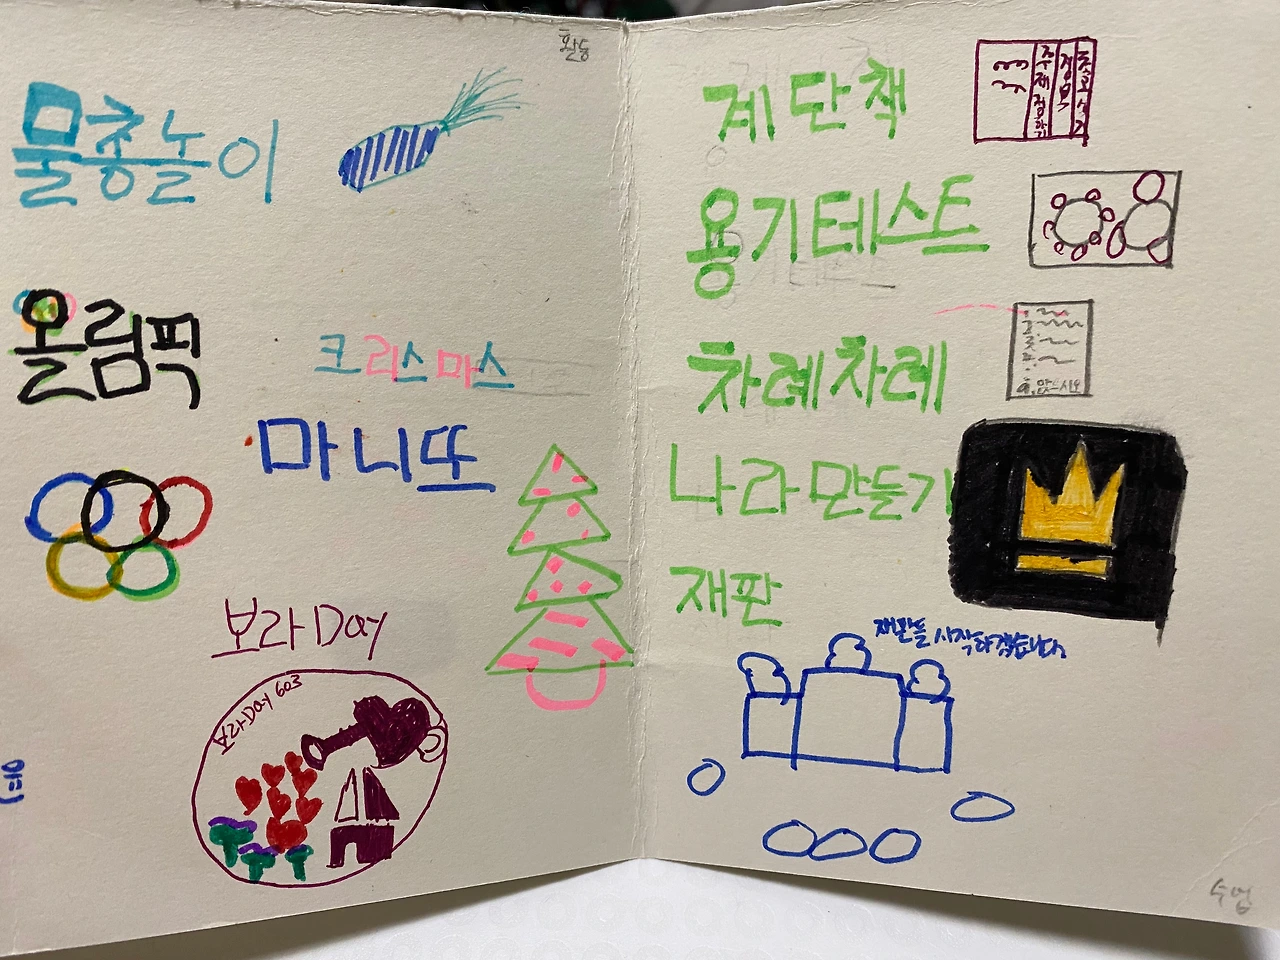 활동
물총놀이
올림픽
크리스마스
마니또
보라Day
보라Day 603
계단책
용기테스트
차례차례
나라만들기
재판
재판을 시작하겠습니다.
수업